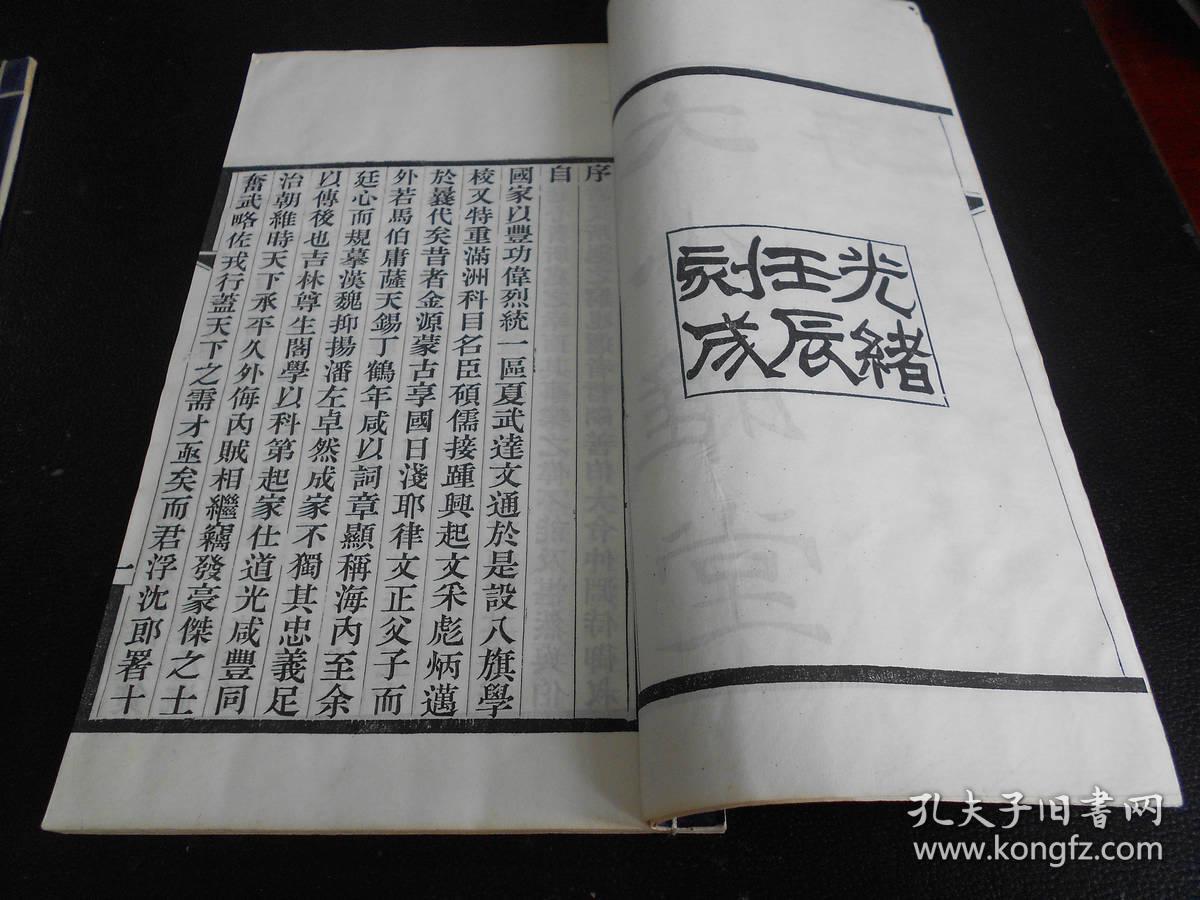 光緒
壬辰
刻成
序
自
國家以豐功偉烈統一區夏武達文通於是設八旗學
校又特重滿洲科目名臣碩儒接踵興起文釆彪炳邁
於曩代矣昔者金源蒙古享國日淺耶律文正父子而
外若馬伯庸薩天錫丁鶴年咸以詞章顯稱海內至余
廷心而規摹漢魏抑揚潘左卓然成家不獨其忠義足
以傳後也吉林尊生閣學以科第起家仕道光咸豐同
治朝維時天下承平久外侮內賊相繼竊發豪傑之士
奮武略佐戎行蓋天下之需才亟矣而君浮沈郎署十
一
孔夫子旧书网
www.kongfz.com